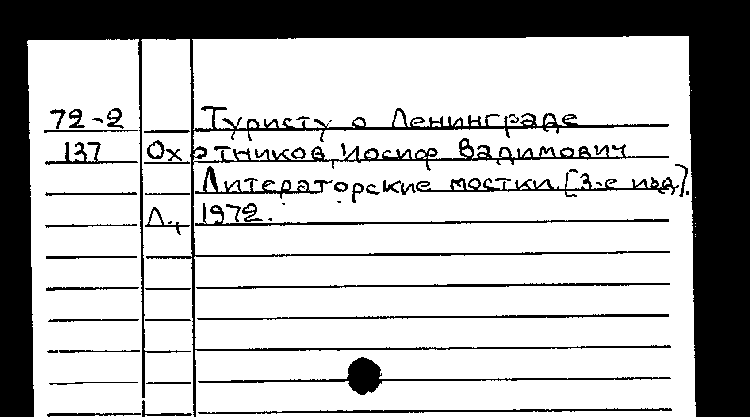 72-2 Туристу о Ленинграде
137 Охотников, Иосиф Вадимович
Литераторские мостки. [3-е изд].
Л., 1972.